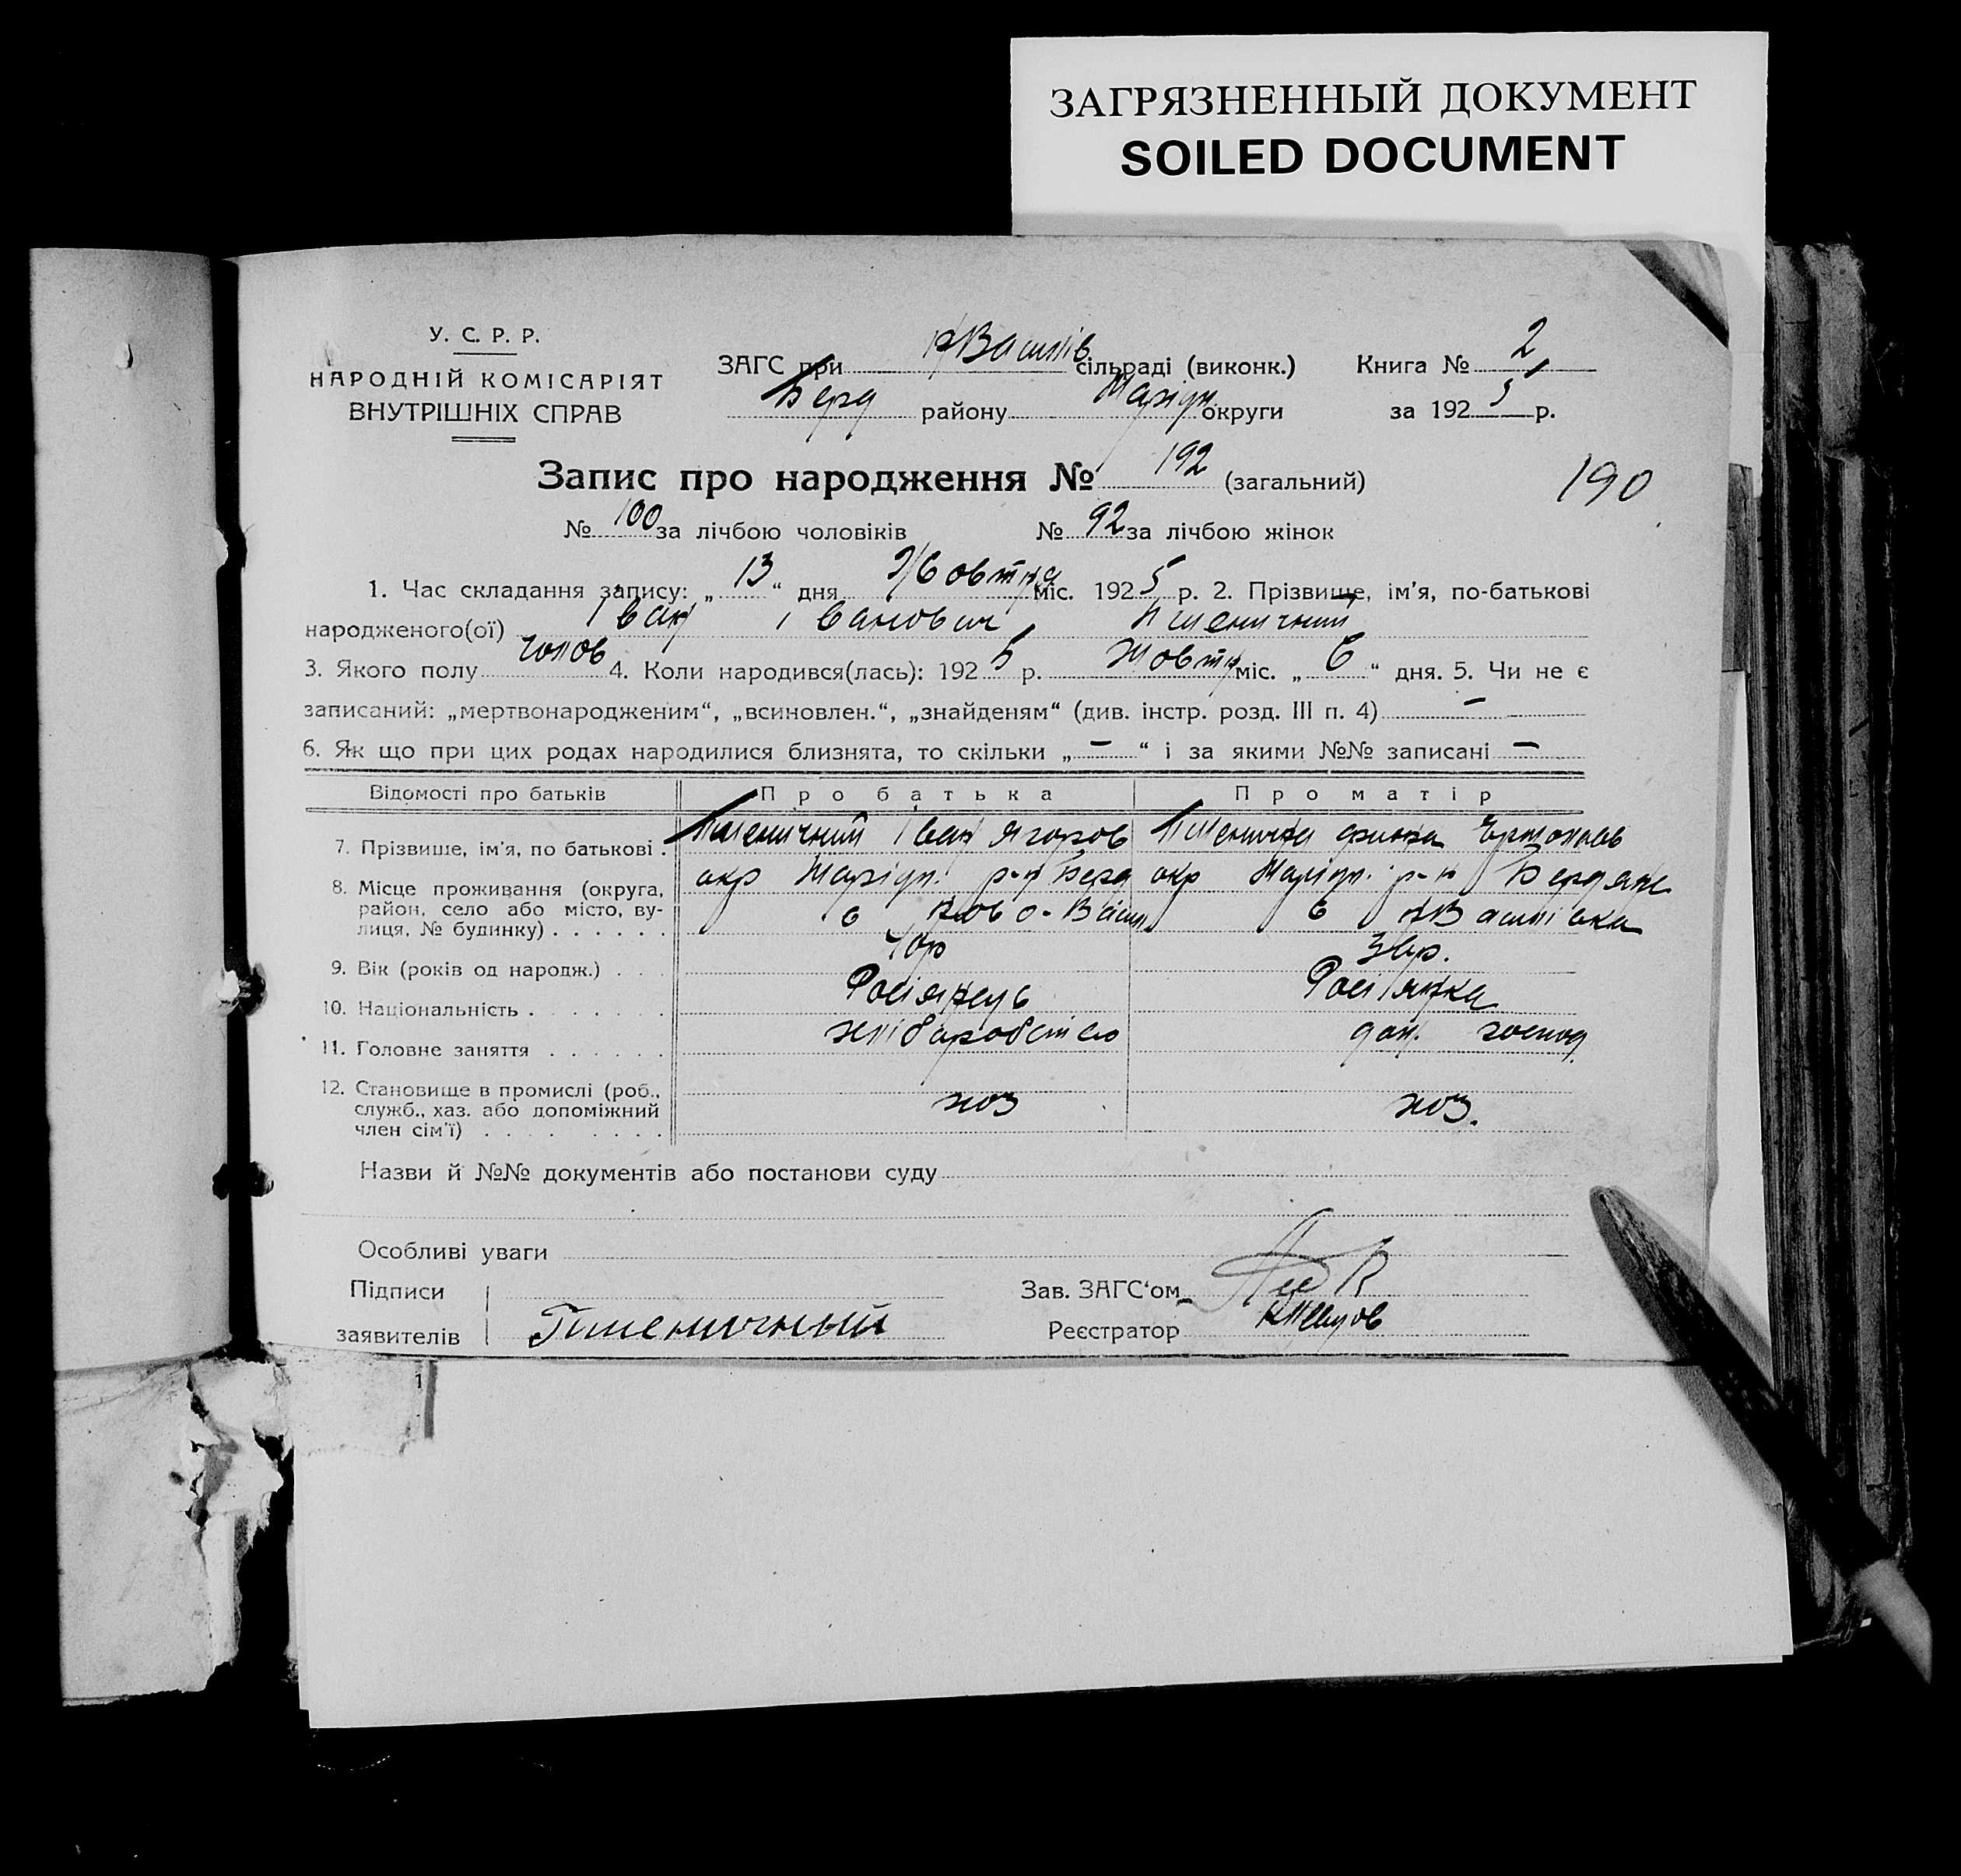 ЗАГРЯЗНЕННЫЙ ДОКУМЕНТ
SOILED DOCUMENT
У. С. Р. Р.
НАРОДНІЙ КОМІСАРІЯТ
ВНУТРІШНІХ СПРАВ
ЗАГС при нВасилів сільраді (виконк.)
Берд району Маріуп. округи
Книга № 2
за 1925 р.
Запис про народження № 192 (загальний)
190
№ 100 за лічбою чоловіків № 92 за лічбою жінок
1. Час складання запису: „13“ дня Жовтня міс. 1925 р. 2. Прізвище, ім'я, по-батькові
народженого(ої) Іван Іванович Пшеничний
3. Якого полу чолов 4. Коли народився(лась): 1925 р. Жовтн міс. „6“ дня. 5. Чи не є
записаний: „мертвонародженим“, „всиновлен.“, „знайденям“ (див. інстр. розд. III п. 4) –
6. Як що при цих родах народилися близнята, то скільки „–“ і за якими №№ записані –
Відомості про батьків Про батька Про матір
7. Прізвище, ім'я, по батькові . Пшеничний Іван Ягоров Пшенична
8. Місце проживання (округа, район, село або місто, вулиця, № будинку) . . . . . .
окр Маріуп. р-н Берд окр Маріуп. р-н Бердянс
с Ново-Васил с нВасилівка
9. Вік (років од народж.) . . .
10. Національність . . . . . . . Росіянець Росіянка
11. Головне заняття . . . . . . хліборобство дом. господ.
12. Становище в промислі (роб.,
служб., хаз. або допоміжний
член сім'ї) . . . . . . . . хоз хоз.
Назви й №№ документів або постанови суду
Особливі уваги
Підписи
заявителів Пшеничный
Зав. ЗАГС'ом
Реєстратор
1